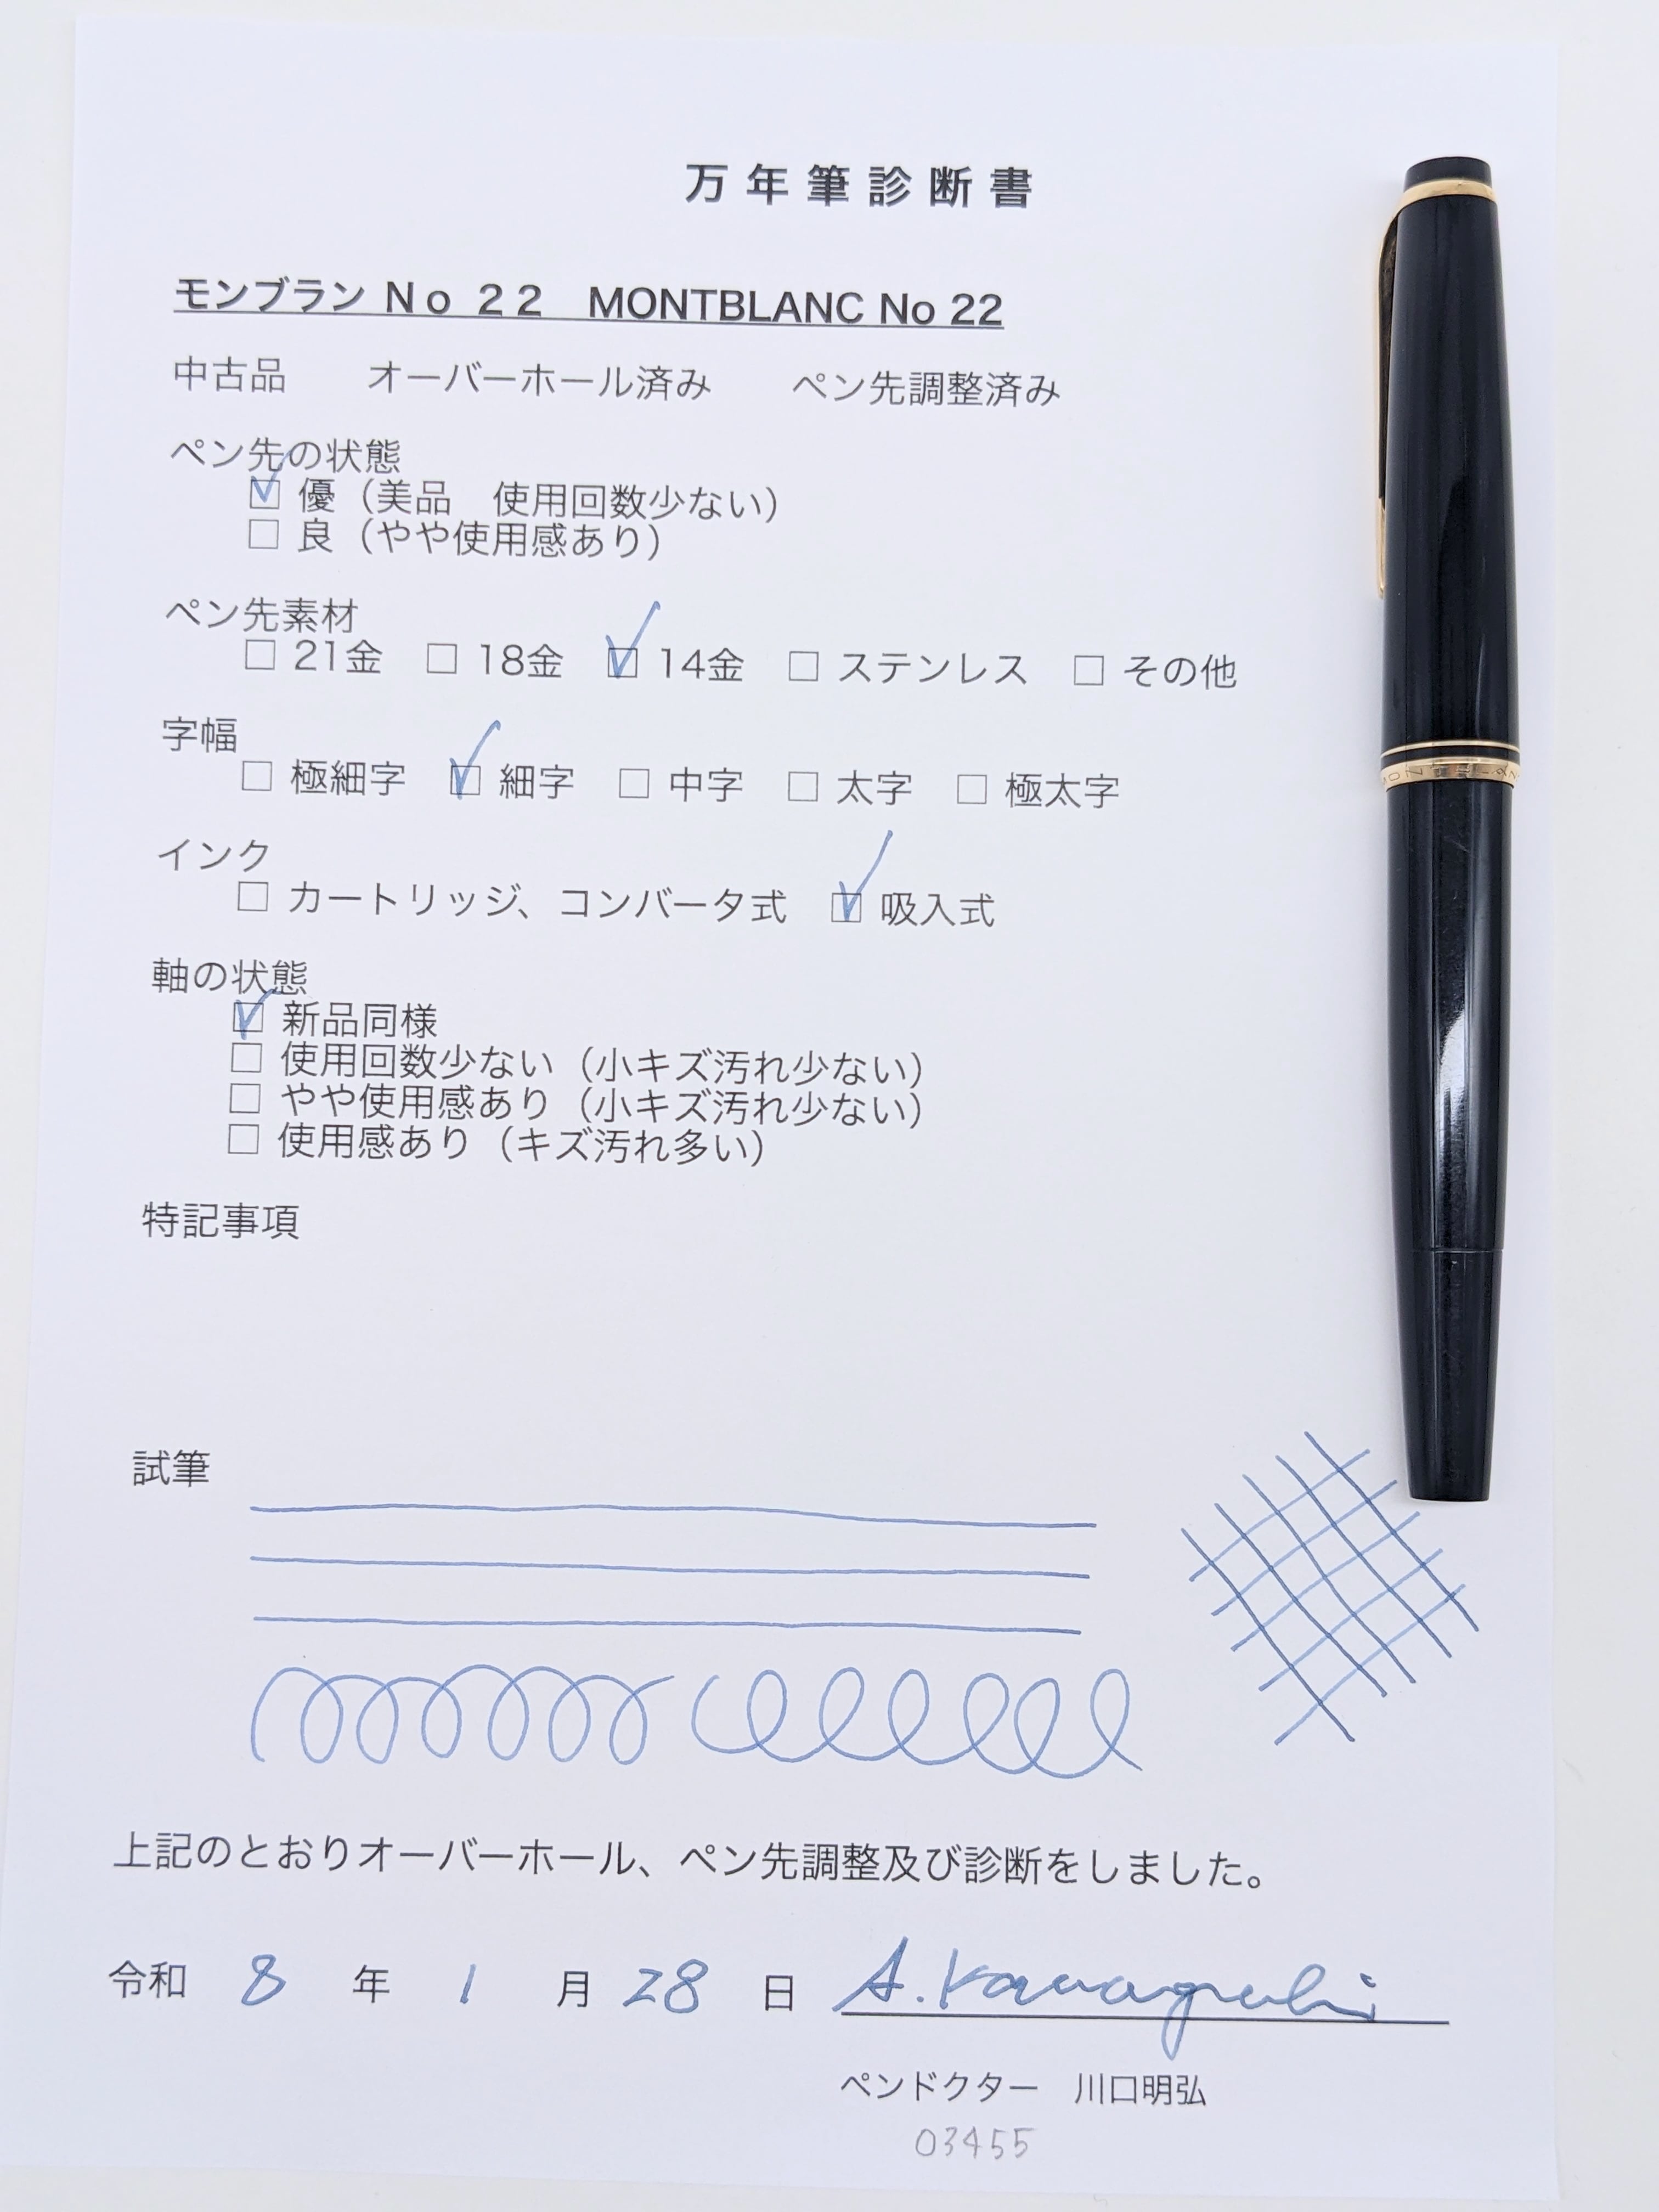 万年筆診断書
モンブラン Ｎｏ ２２　MONTBLANC No 22
中古品　オーバーホール済み　ペン先調整済み
ペン先の状態
☑ 優（美品　使用回数少ない）
□ 良（やや使用感あり）
ペン先素材
□ 21金 □ 18金 ☑ 14金 □ ステンレス □ その他
字幅
□ 極細字 ☑ 細字 □ 中字 □ 太字 □ 極太字
インク
□ カートリッジ、コンバータ式 ☑ 吸入式
軸の状態
☑ 新品同様
□ 使用回数少ない（小キズ汚れ少ない）
□ やや使用感あり（小キズ汚れ少ない）
□ 使用感あり（キズ汚れ多い）
特記事項
試筆
上記のとおりオーバーホール、ペン先調整及び診断をしました。
令和 8 年 1 月 28 日 A. Kawaguchi
ペンドクター　川口明弘
03455